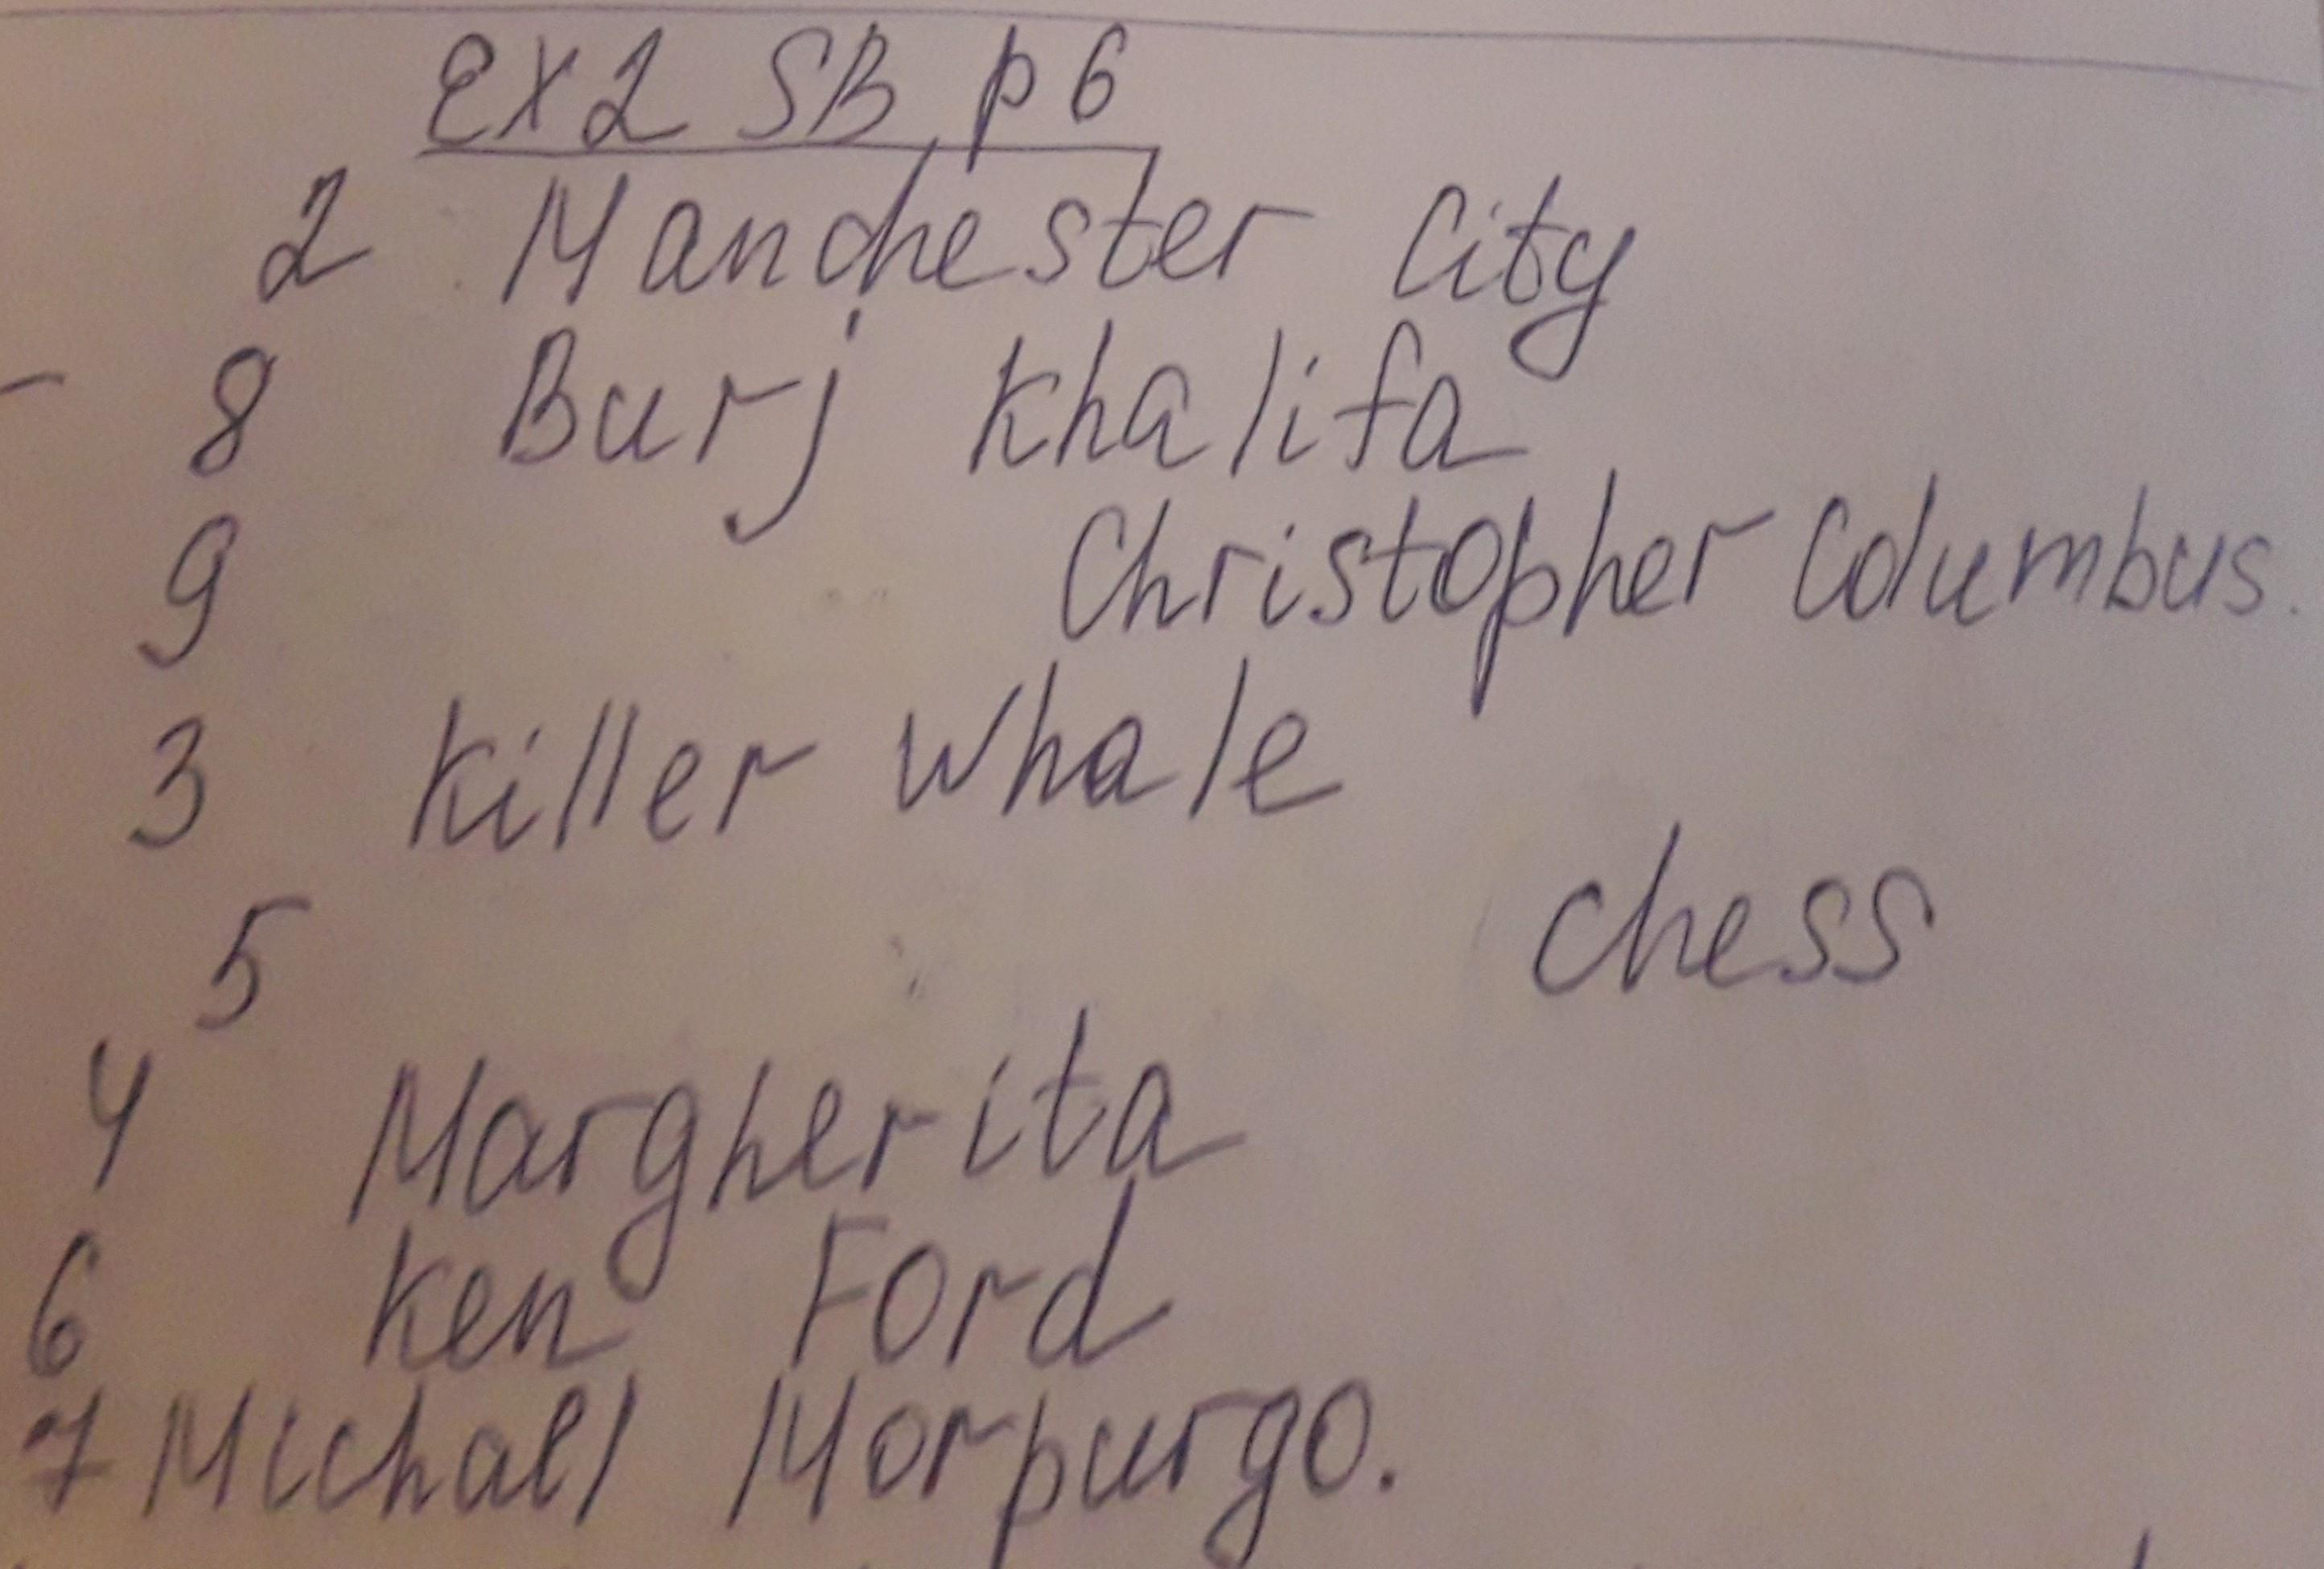 Ex 2 SB p 6
2 Manchester City
8 Burj Khalifa
9 Christopher Columbus.
3 Killer whale
5 chess
4 Margherita
6 Ken Ford
7 Michael Morpurgo.